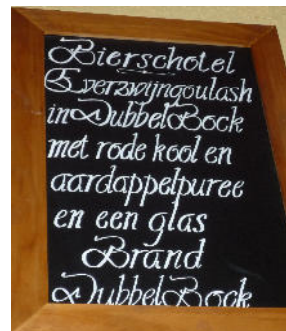 Bierschotel
Everzwijngoulash
in DubbelBock
met rode kool en
aardappelpuree
en een glas
Brand
DubbelBock